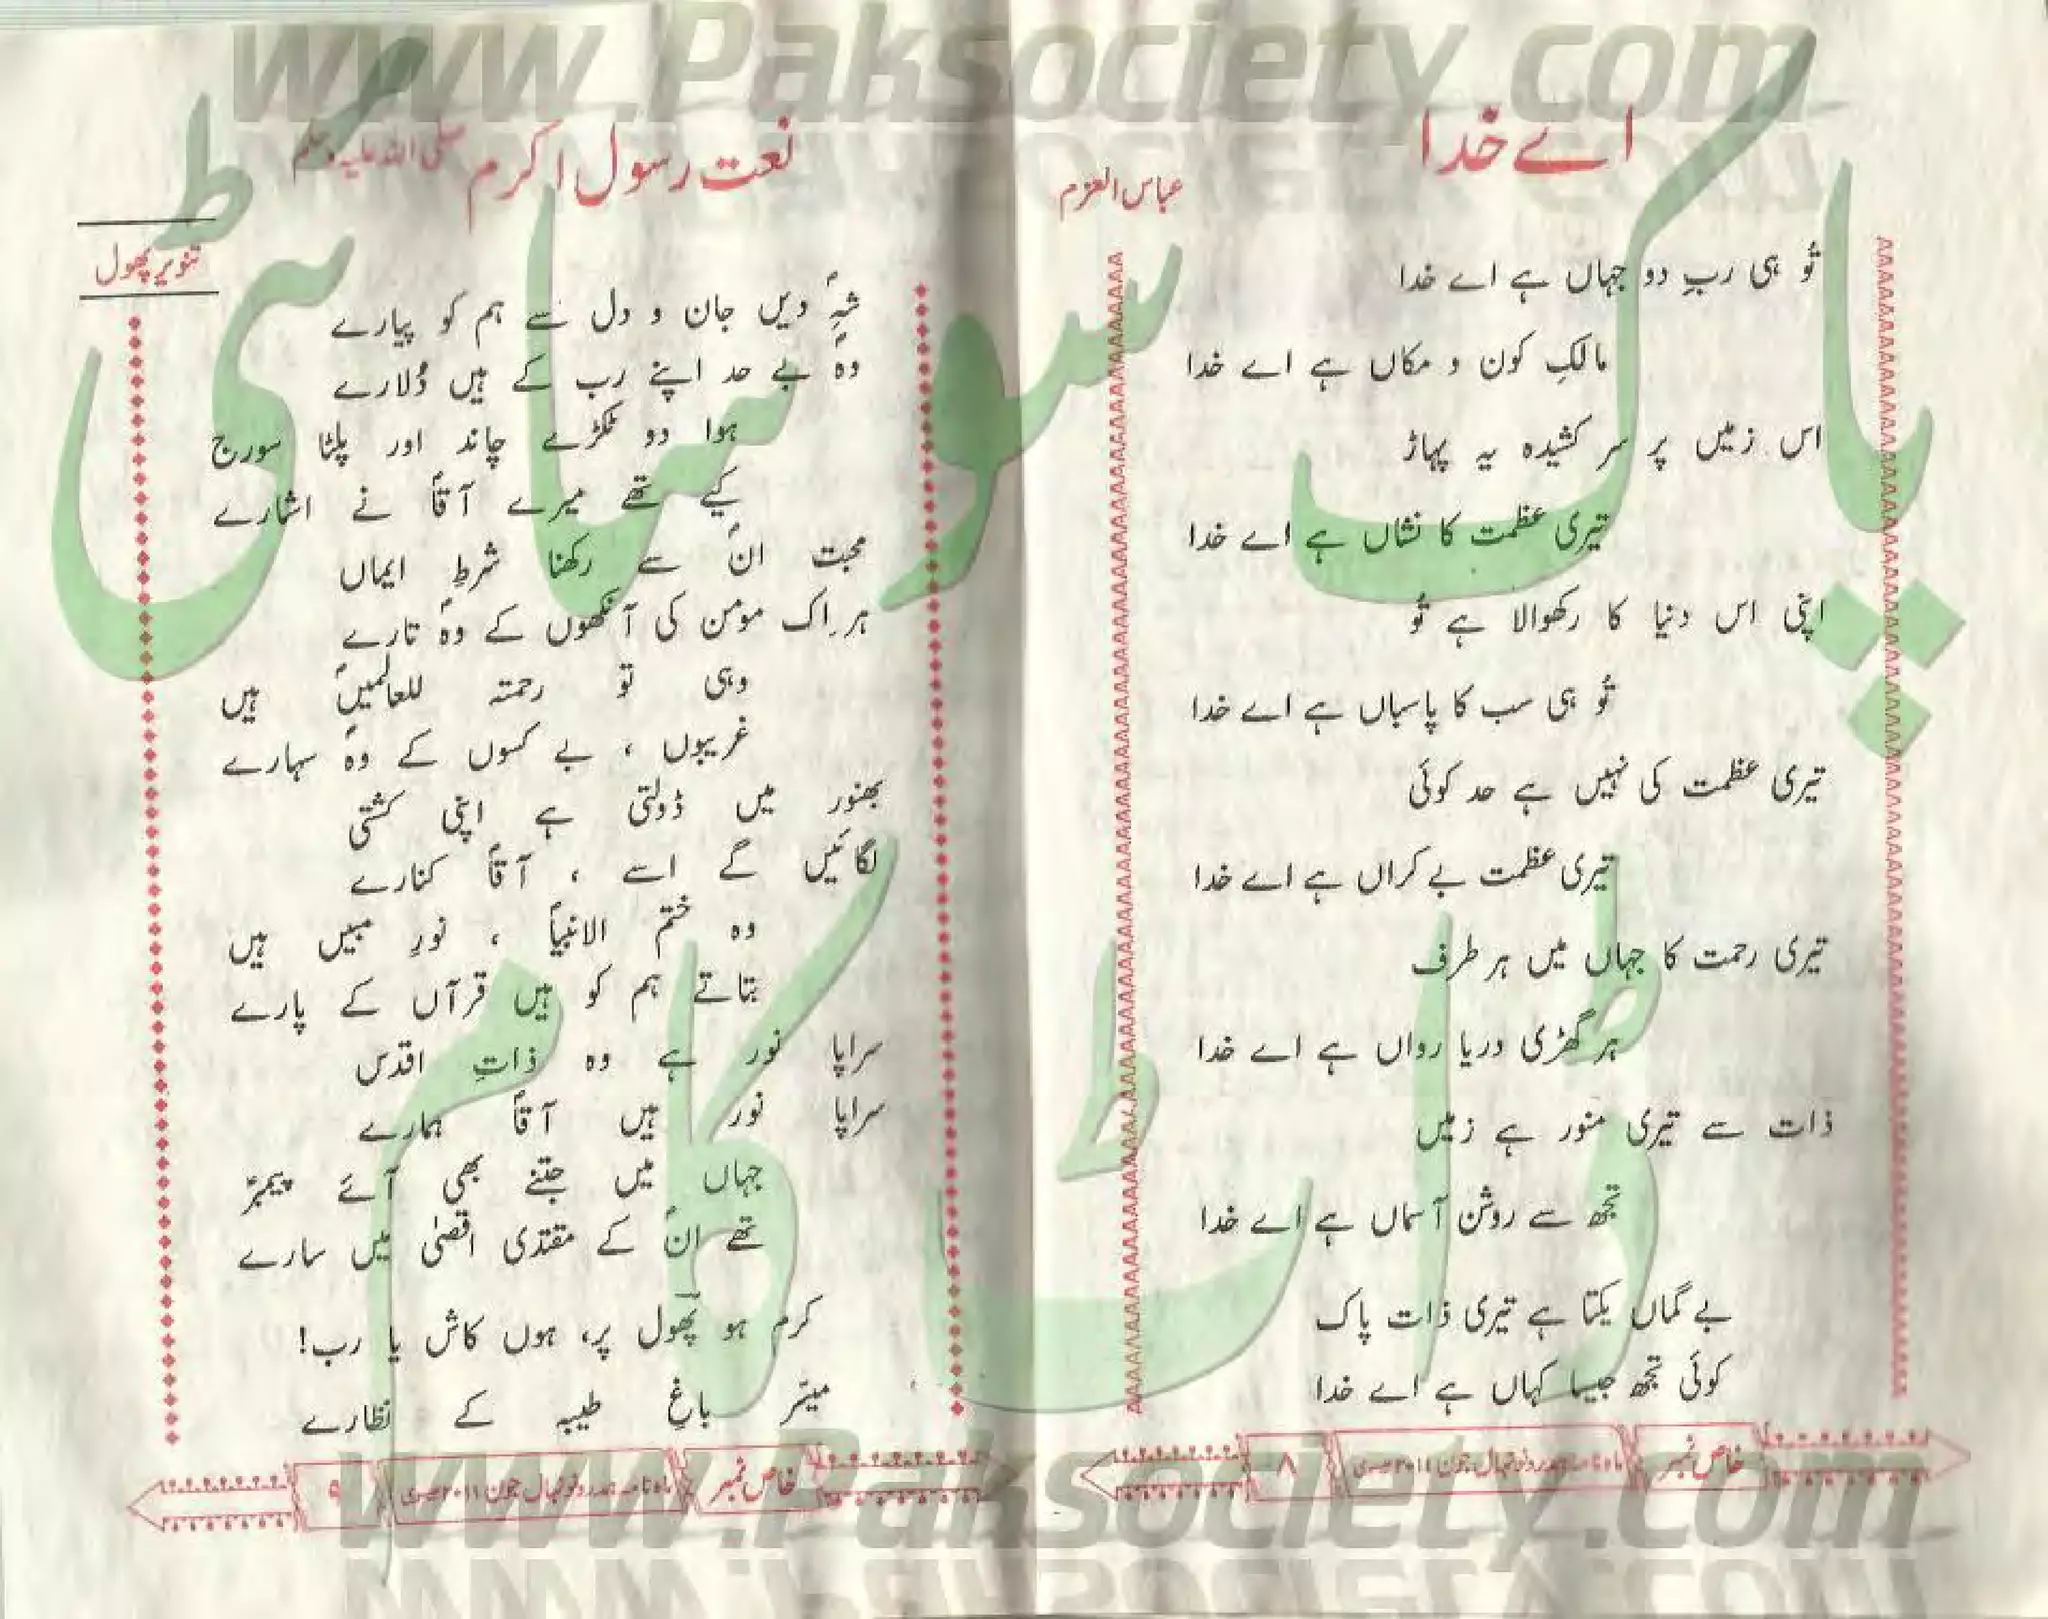 www.Paksociety.com
اے خدا
عباس العزم
تُو ہی ربِ دو جہاں ہے اے خدا
مالکِ کون و مکاں ہے اے خدا
اس زمیں پر سر کشیدہ یہ پہاڑ
تیری عظمت کا نشاں ہے اے خدا
اپنی اس دنیا کا رکھوالا ہے تُو
تُو ہی سب کا پاسباں ہے اے خدا
تیری عظمت کی نہیں ہے حد کوئی
تیری عظمت بے کراں ہے اے خدا
تیری رحمت کا جہاں میں ہر طرف
ہر گھڑی دریا رواں ہے اے خدا
ذات سے تیری منور ہے زمیں
تجھ سے روشن آسماں ہے اے خدا
بے گماں یکتا ہے تیری ذات پاک
کوئی تجھ جیسا کہاں ہے اے خدا
خاص نمبر
ماہ نامہ ہمدرد نونہال جون ۲۰۱۱ عیسوی
۸
نعت رسول اکرم صلی اللہ علیہ وسلم
تنویر پھول
شہِؐ دیں جان و دل سے ہم کو پیارے
وہؐ بے حد اپنے رب کے ہیں دُلارے
ہوا دو ٹکڑے چاند اور پلٹا سورج
کیے تھے میرے آقاؐ نے اشارے
محبت انؐ سے رکھنا شرطِ ایماں
ہر اک مومن کی آنکھوں کے وہؐ تارے
وہی تو رحمتہ للعالمیںؐ ہیں
غریبوں ، بے کسوں کے وہؐ سہارے
بھنور میں ڈولتی ہے اپنی کشتی
لگائیں گے اسے ، آقاؐ کنارے
وہ ختم الانبیاؐ ، نورِ مبیں ہیں
بتاتے ہم کو ہیں قرآں کے پارے
سراپا نور ہے وہ ذاتِ اقدس
سراپا نور ہیں آقاؐ ہمارے
جہاں میں جتنے بھی آئے پیمبرؑ
تھے انؐ کے مقتدی اقصیٰ میں سارے
کرم ہو پھول پر، ہوں کاش یا رب!
میسّر باغِ طیبہ کے نظارے
خاص نمبر
ماہ نامہ ہمدرد نونہال جون ۲۰۱۱ عیسوی
۹
پاک سوسائٹی
ڈاٹ کام
www.Paksociety.com